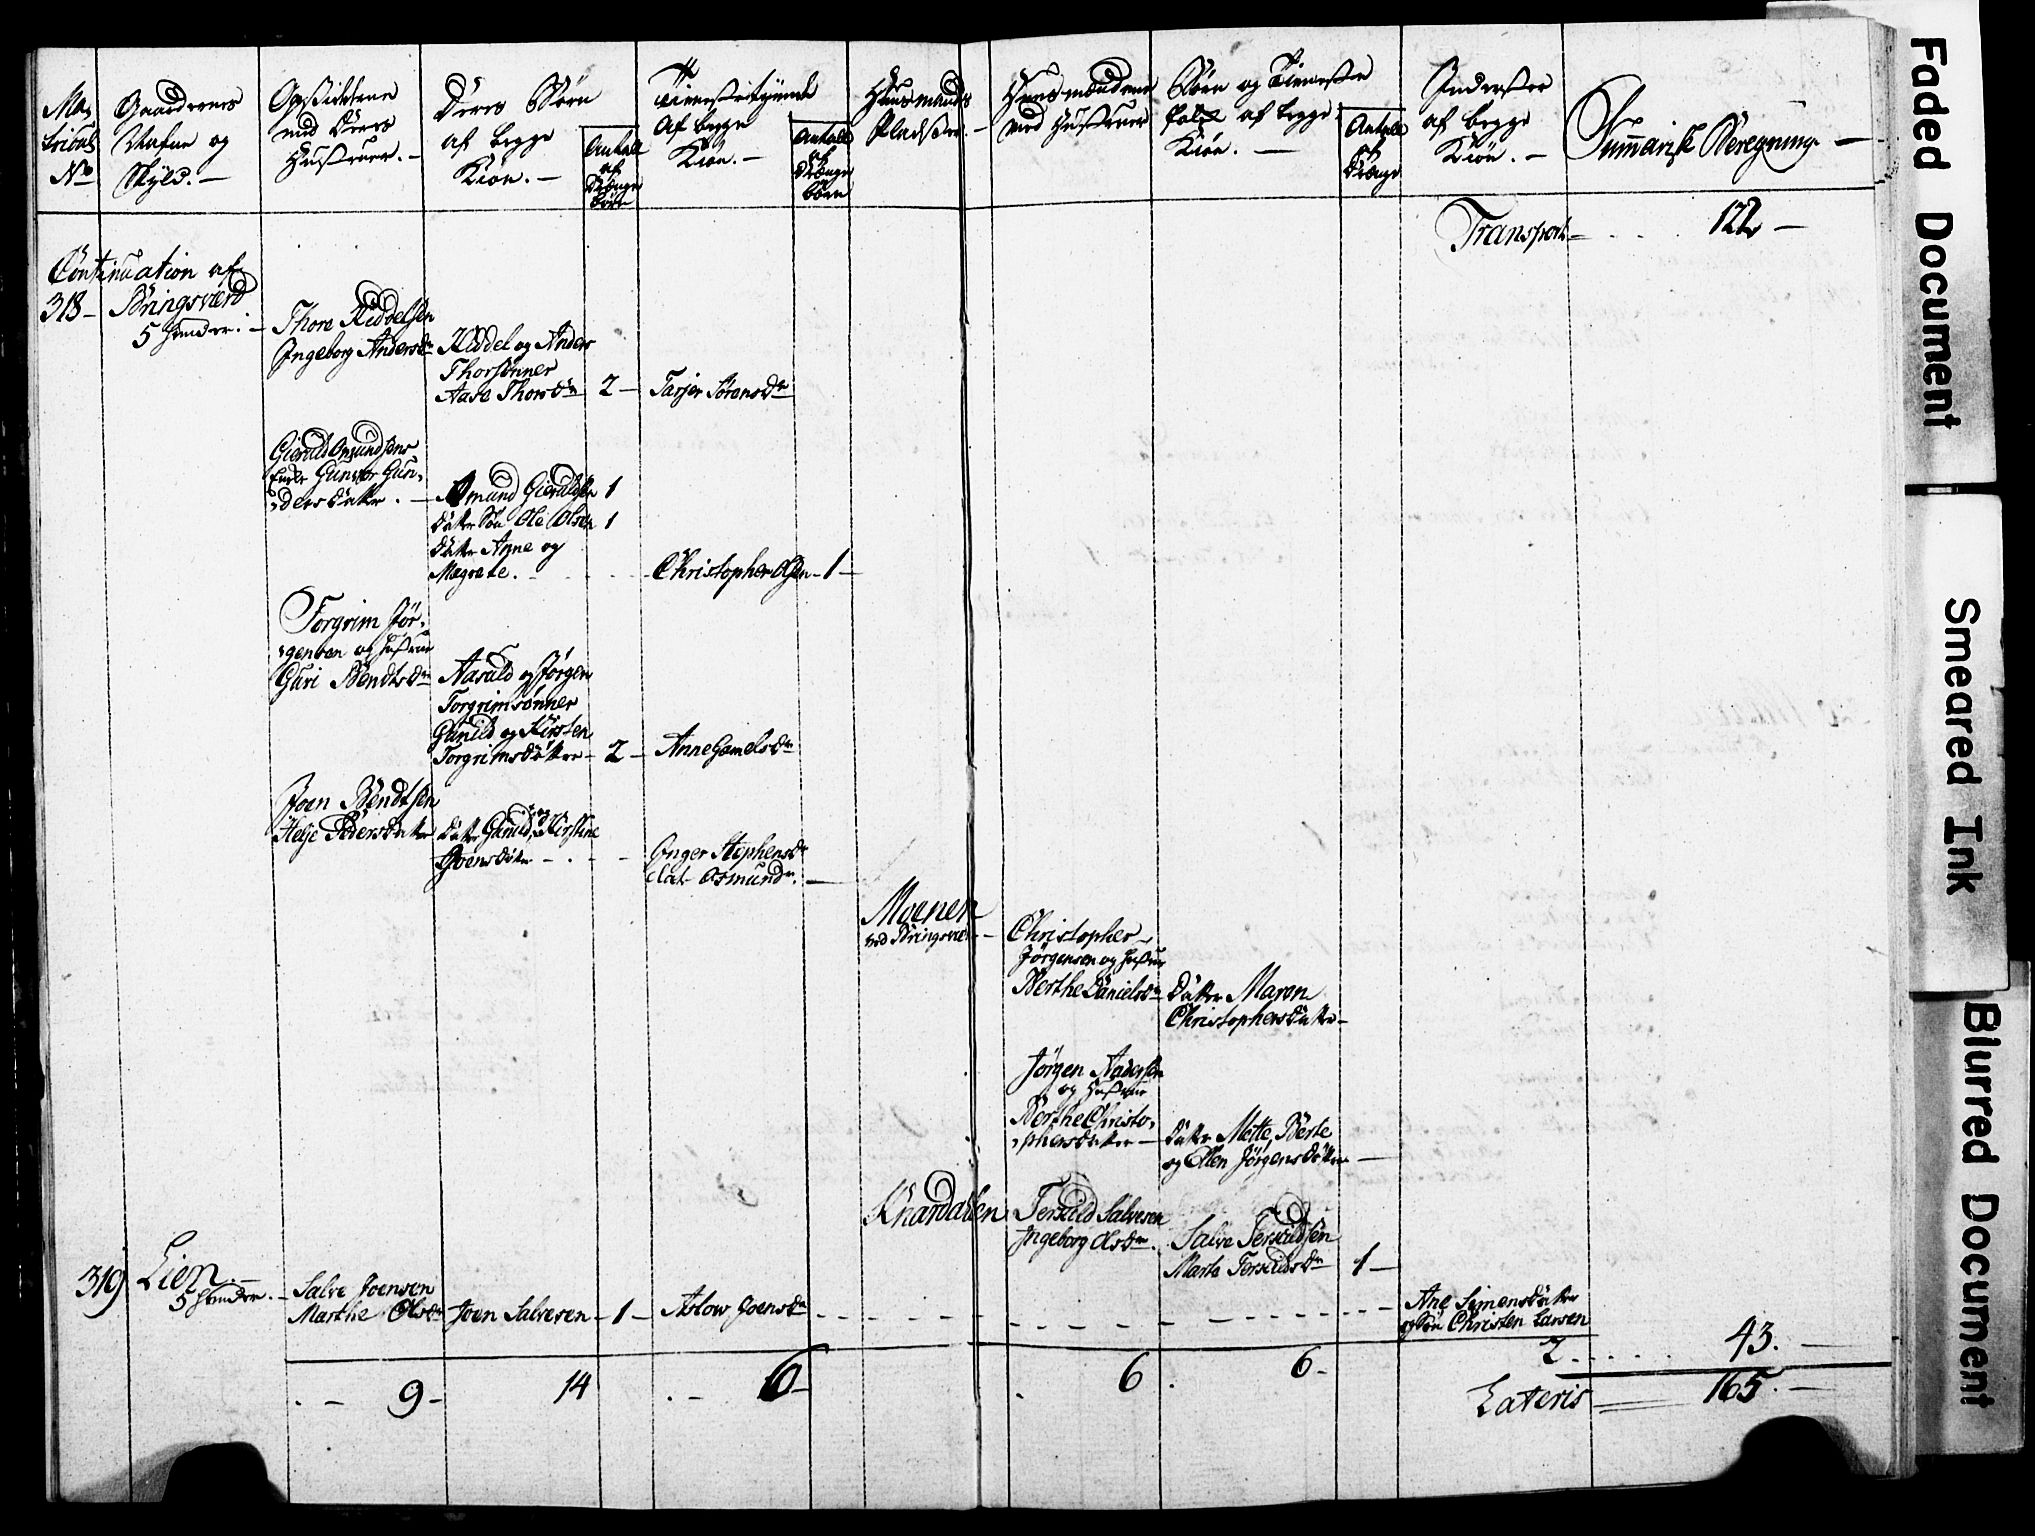 Ma,
tricul
No
Gaardenes
Nafne og
Skyld. -
Opsidderne
med Deres
Hustruer. -
Deres Börn
af begge
Kiön. -
Antall
af
Drenge
börn
Tienestetyende
Af begge
Kiön. -
Antall
af
Drenge
börn
Huusmands
Pladser. -
Huusmændene
med Hustruer
Börn og Tieneste
folk af begge
Kiön. -
Antall
af
Drenge
Inderster
af begge
Kiön. -
Summarisk Beregning. -
Transport - . . . 122 -
Continuation af
318 - Bringsværd
5 hender. -
Thore Kiddelsen
Ingeborg Andersdr
Kiddel og Anders
Thorsönner
Aase Thorsdr 2 - Tarjer Sörensdr
Gieruld Omundsens
Enke Gunvor Gun,
,dersdatter. -
Omund Gieruldsen 1
Datter Sön Ole Olsen 1
Datter Anne og
Magrete. - . . . - Christopher Olsen - 1 -
Torgrim Jör,
,gensen og hustrue
Guri Bendtsdr
Aasuld og Jörgen
Torgrimsönner
Gunild og Kirsten
Torgrimsdöttre - 2 - Anne Gamelsdr
Joen Bendtsen
Helje Pedersdatter
Datter Gunild, og Kirstine
Joensdöttre - . - - Inger Stephensdr
Osmundr. -
Moenen
ved Bringsvær -
Christopher -
Jörgensen og hustrue
Berthe Danielsdr
Datter Maren
Christophersdatter -
Jörgen Andersen
og Hustrue
Berthe Christo,
,phersdatter -
Datter Mette, Berte
og Ellen Jörgensdöttre -
Knardalen
Terkild Salvesen
Ingeborg Olsdr.
Salve Terkildsen
Marte Terkildsdr 1 -
319 Lien. -
5 hender. -
Salve Joensen
Marthe Olsdr Joen Salvesen - 1 - Aslow Joensdr
Ane Simensdatter
og Sön Christen Larsen
2. . . . . 43. -
. - 9 - 14 . - 6 - . 6 . 6 -
Lateris 165. -
Faded Document
Smeared Ink
Blurred Document